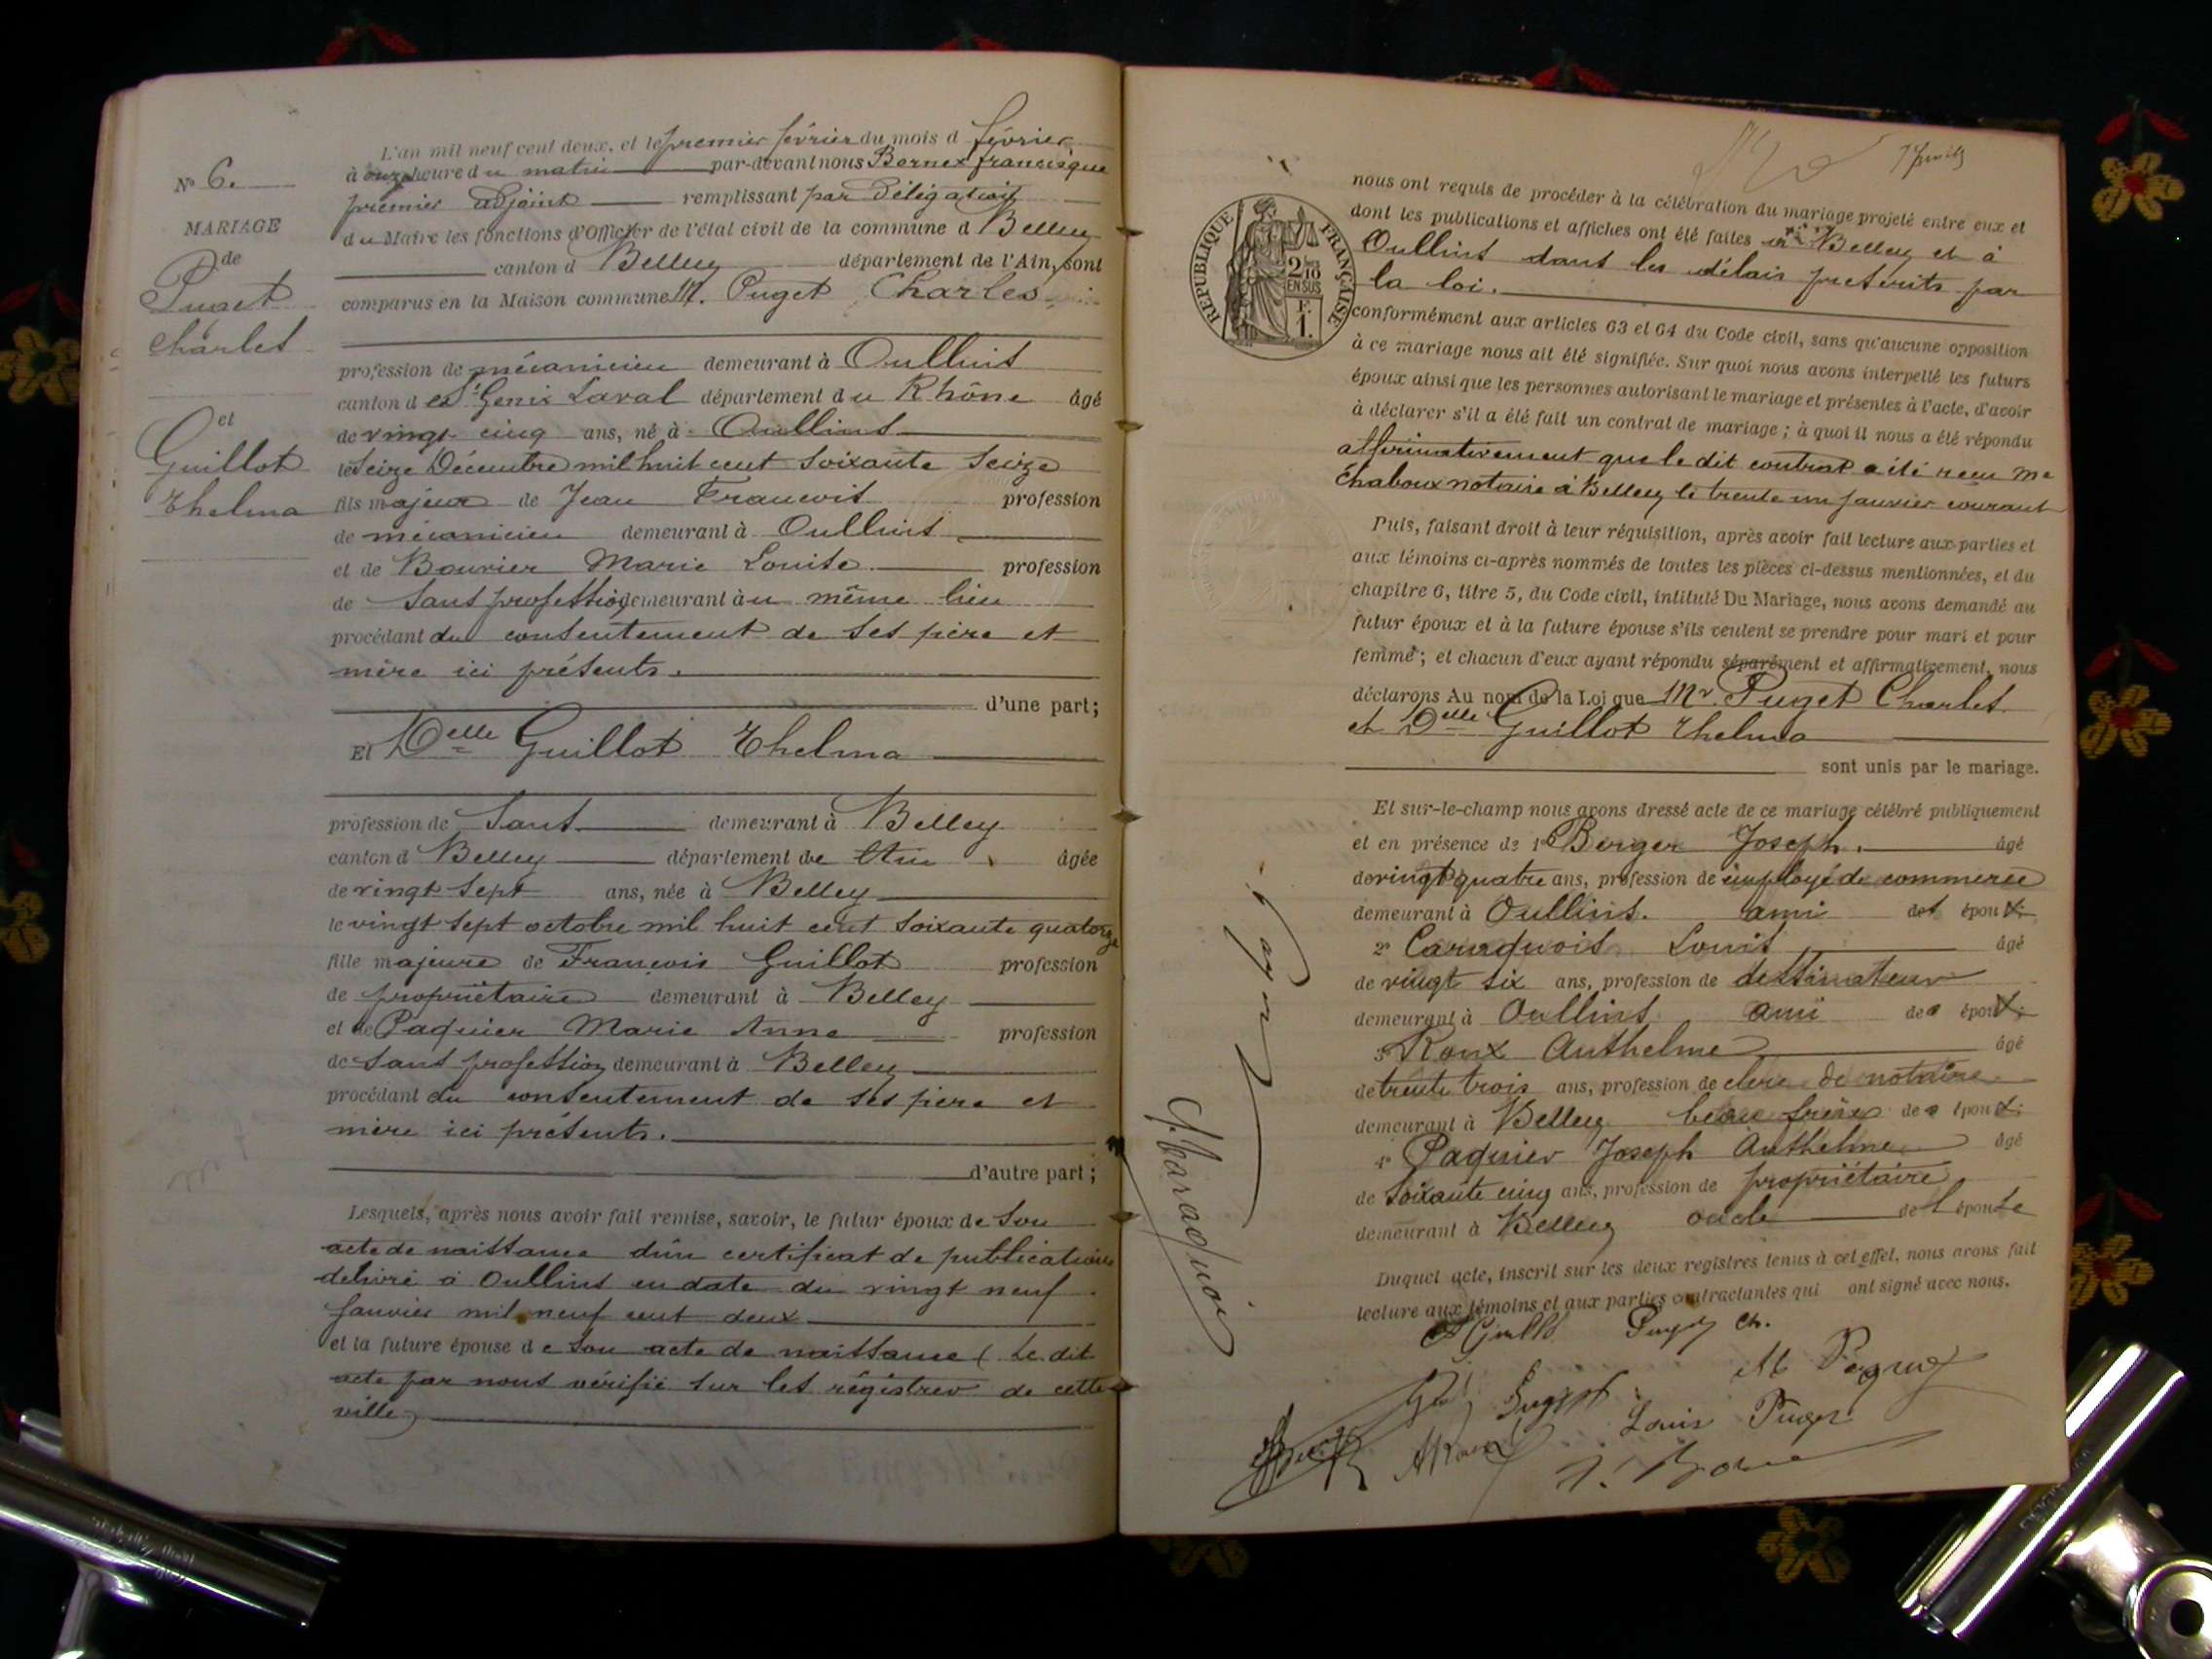 L'an mil neuf cent deux, et le premier février du mois d février
N° 6. à onze heure du matin par-devant nous Bornex francisque
premier adjoint remplissant par délégation
MARIAGE du Maire les fonctions d'Officier de l'état civil de la commune d Belley
de canton d Belley département de l'Ain, sont
Puget comparus en la Maison commune M. Puget Charles
Charles
profession de mécanicien demeurant à Oullins
canton d e St Genis Laval département du Rhône âgé
et de vingt cinq ans, né à Oullins
Guillot le Seize Décembre mil huit cent soixante seize
Thelma fils majeur de Jean François profession
de mécanicien demeurant à Oullins
et de Bouvier Marie Louise profession
de Sans profession demeurant au même lieu
procédant du consentement de ses père et
mère ici présents.
d'une part;
Et Delle Guillot Thelma
profession de Sans demeurant à Belley
canton d Belley département de Ain âgée
de vingt sept ans, née à Belley
le vingt sept octobre mil huit cent soixante quatorze
fille majeure de François Guillot profession
de propriétaire demeurant à Belley
et de Paquier Marie Anne profession
de Sans profession demeurant à Belley
procédant du consentement de ses père et
mère ici présents.
d'autre part;
Lesquels, après nous avoir fait remise, savoir, le futur époux de Son
acte de naissance d'un certificat de publications
délivré à Oullins en date du vingt neuf
Janvier mil neuf cent deux
et la future épouse de Son acte de naissance (Le dit
acte par nous vérifié sur les régistres de cette
ville)
REPUBLIQUE FRANÇAISE
2/10 EN SUS
F. 1.
nous ont requis de procéder à la célébration du mariage projeté entre eux et
dont les publications et affiches ont été faites à Belley et à
Oullins dans les délais prescrits par
la loi.
conformément aux articles 63 et 64 du Code civil, sans qu'aucune opposition
à ce mariage nous ait été signifiée. Sur quoi nous avons interpellé les futurs
époux ainsi que les personnes autorisant le mariage et présentes à l'acte, d'avoir
à déclarer s'il a été fait un contrat de mariage; à quoi il nous a été répondu
affirmativement que le dit contrat a été reçu Me
Chaboux notaire à Belley le trente un Janvier courant
Puis, faisant droit à leur réquisition, après avoir fait lecture aux parties et
aux témoins ci-après nommés de toutes les pièces ci-dessus mentionnées, et du
chapitre 6, titre 5, du Code civil, intitulé Du Mariage, nous avons demandé au
futur époux et à la future épouse s'ils veulent se prendre pour mari et pour
femme; et chacun d'eux ayant répondu séparément et affirmativement, nous
déclarons Au nom de la Loi que Mr Puget Charles
et Delle Guillot Thelma
sont unis par le mariage.
Et sur-le-champ nous avons dressé acte de ce mariage célébré publiquement
et en présence de 1° Berger Joseph. âgé
de vingt quatre ans, profession de employé de commerce
demeurant à Oullins. ami des époux
2° Caraquois Louis âgé
de vingt six ans, profession de dessinateur
demeurant à Oullins ami des époux
3° Roux Anthelme âgé
de trente trois ans, profession de clerc de notaire
demeurant à Belley beau frère des époux
4° Paquier Joseph Anthelme âgé
de Soixante cinq ans, profession de propriétaire
demeurant à Belley oncle de l épouse
Duquel acte, inscrit sur les deux registres tenus à cet effet, nous avons fait
lecture aux témoins et aux parties contractantes qui ont signé avec nous.
Puget Ch.
Louis Puget
ARoux